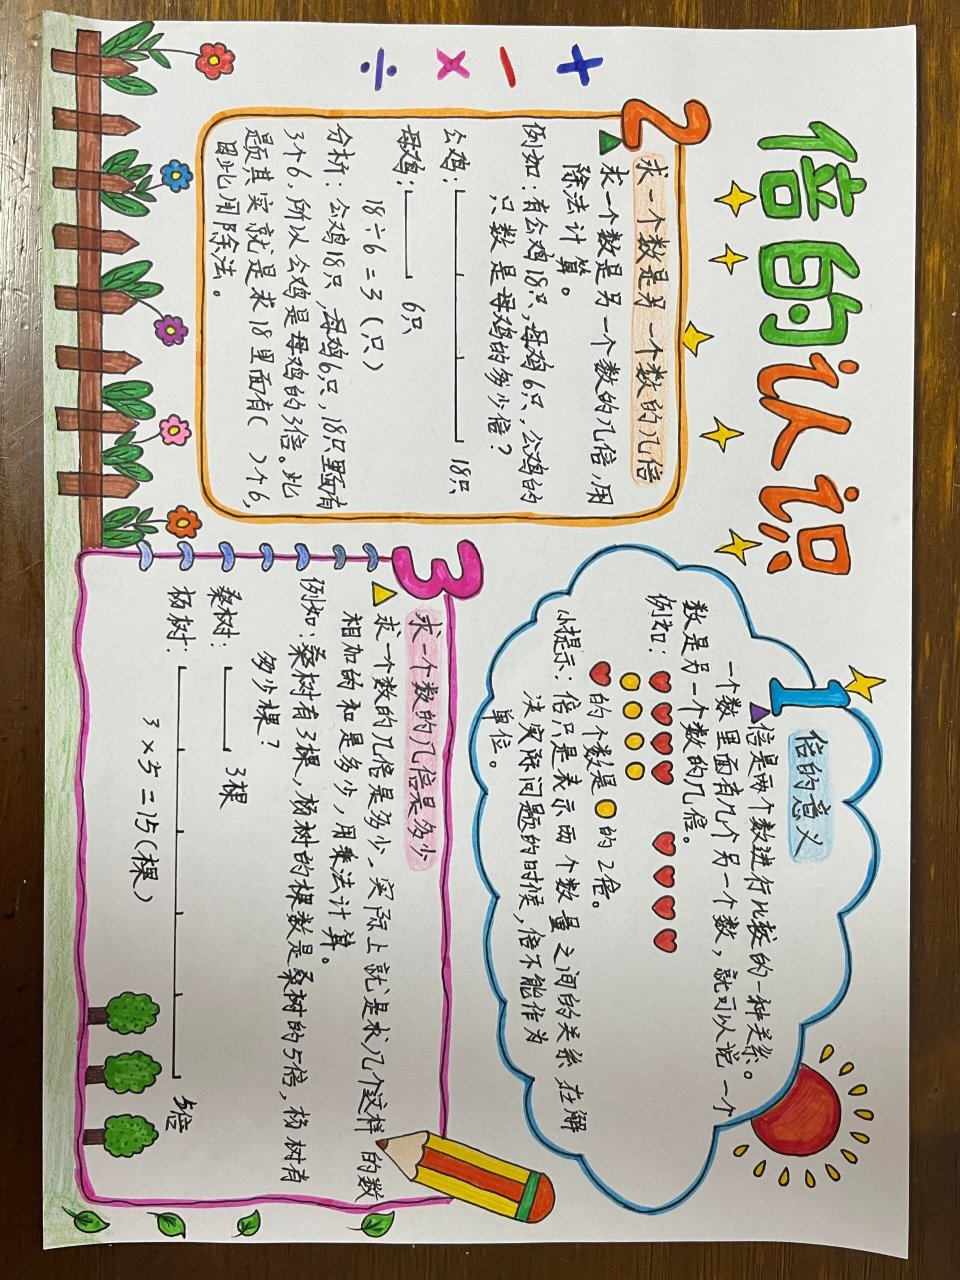 倍的认识
1
倍的意义
倍是两个数进行比较的一种关系。
一个数里面有几个另一个数，就可以说一个
数是另一个数的几倍。
例如：
的个数是的2倍。
小提示：倍只是表示两个数量之间的关系，在解
决实际问题的时候，倍不能作为
单位。
+ − × ÷
2
求一个数是另一个数的几倍
求一个数是另一个数的几倍，用
除法计算。
例如：有公鸡18只，母鸡6只，公鸡的
只数是母鸡的多少倍？
公鸡： 18只
母鸡： 6只
18÷6=3（只）
分析：公鸡18只，母鸡6只，18只里面有
3个6，所以公鸡是母鸡的3倍。此
题其实就是求18里面有（ ）个6，
因此用除法。
3
求一个数的几倍是多少
求一个数的几倍是多少，实际上就是求几个这样的数
相加的和是多少，用乘法计算。
例如：桑树有3棵，杨树的棵数是桑树的5倍，杨树有
多少棵？
桑树： 3棵
杨树： 5倍
3×5=15（棵）